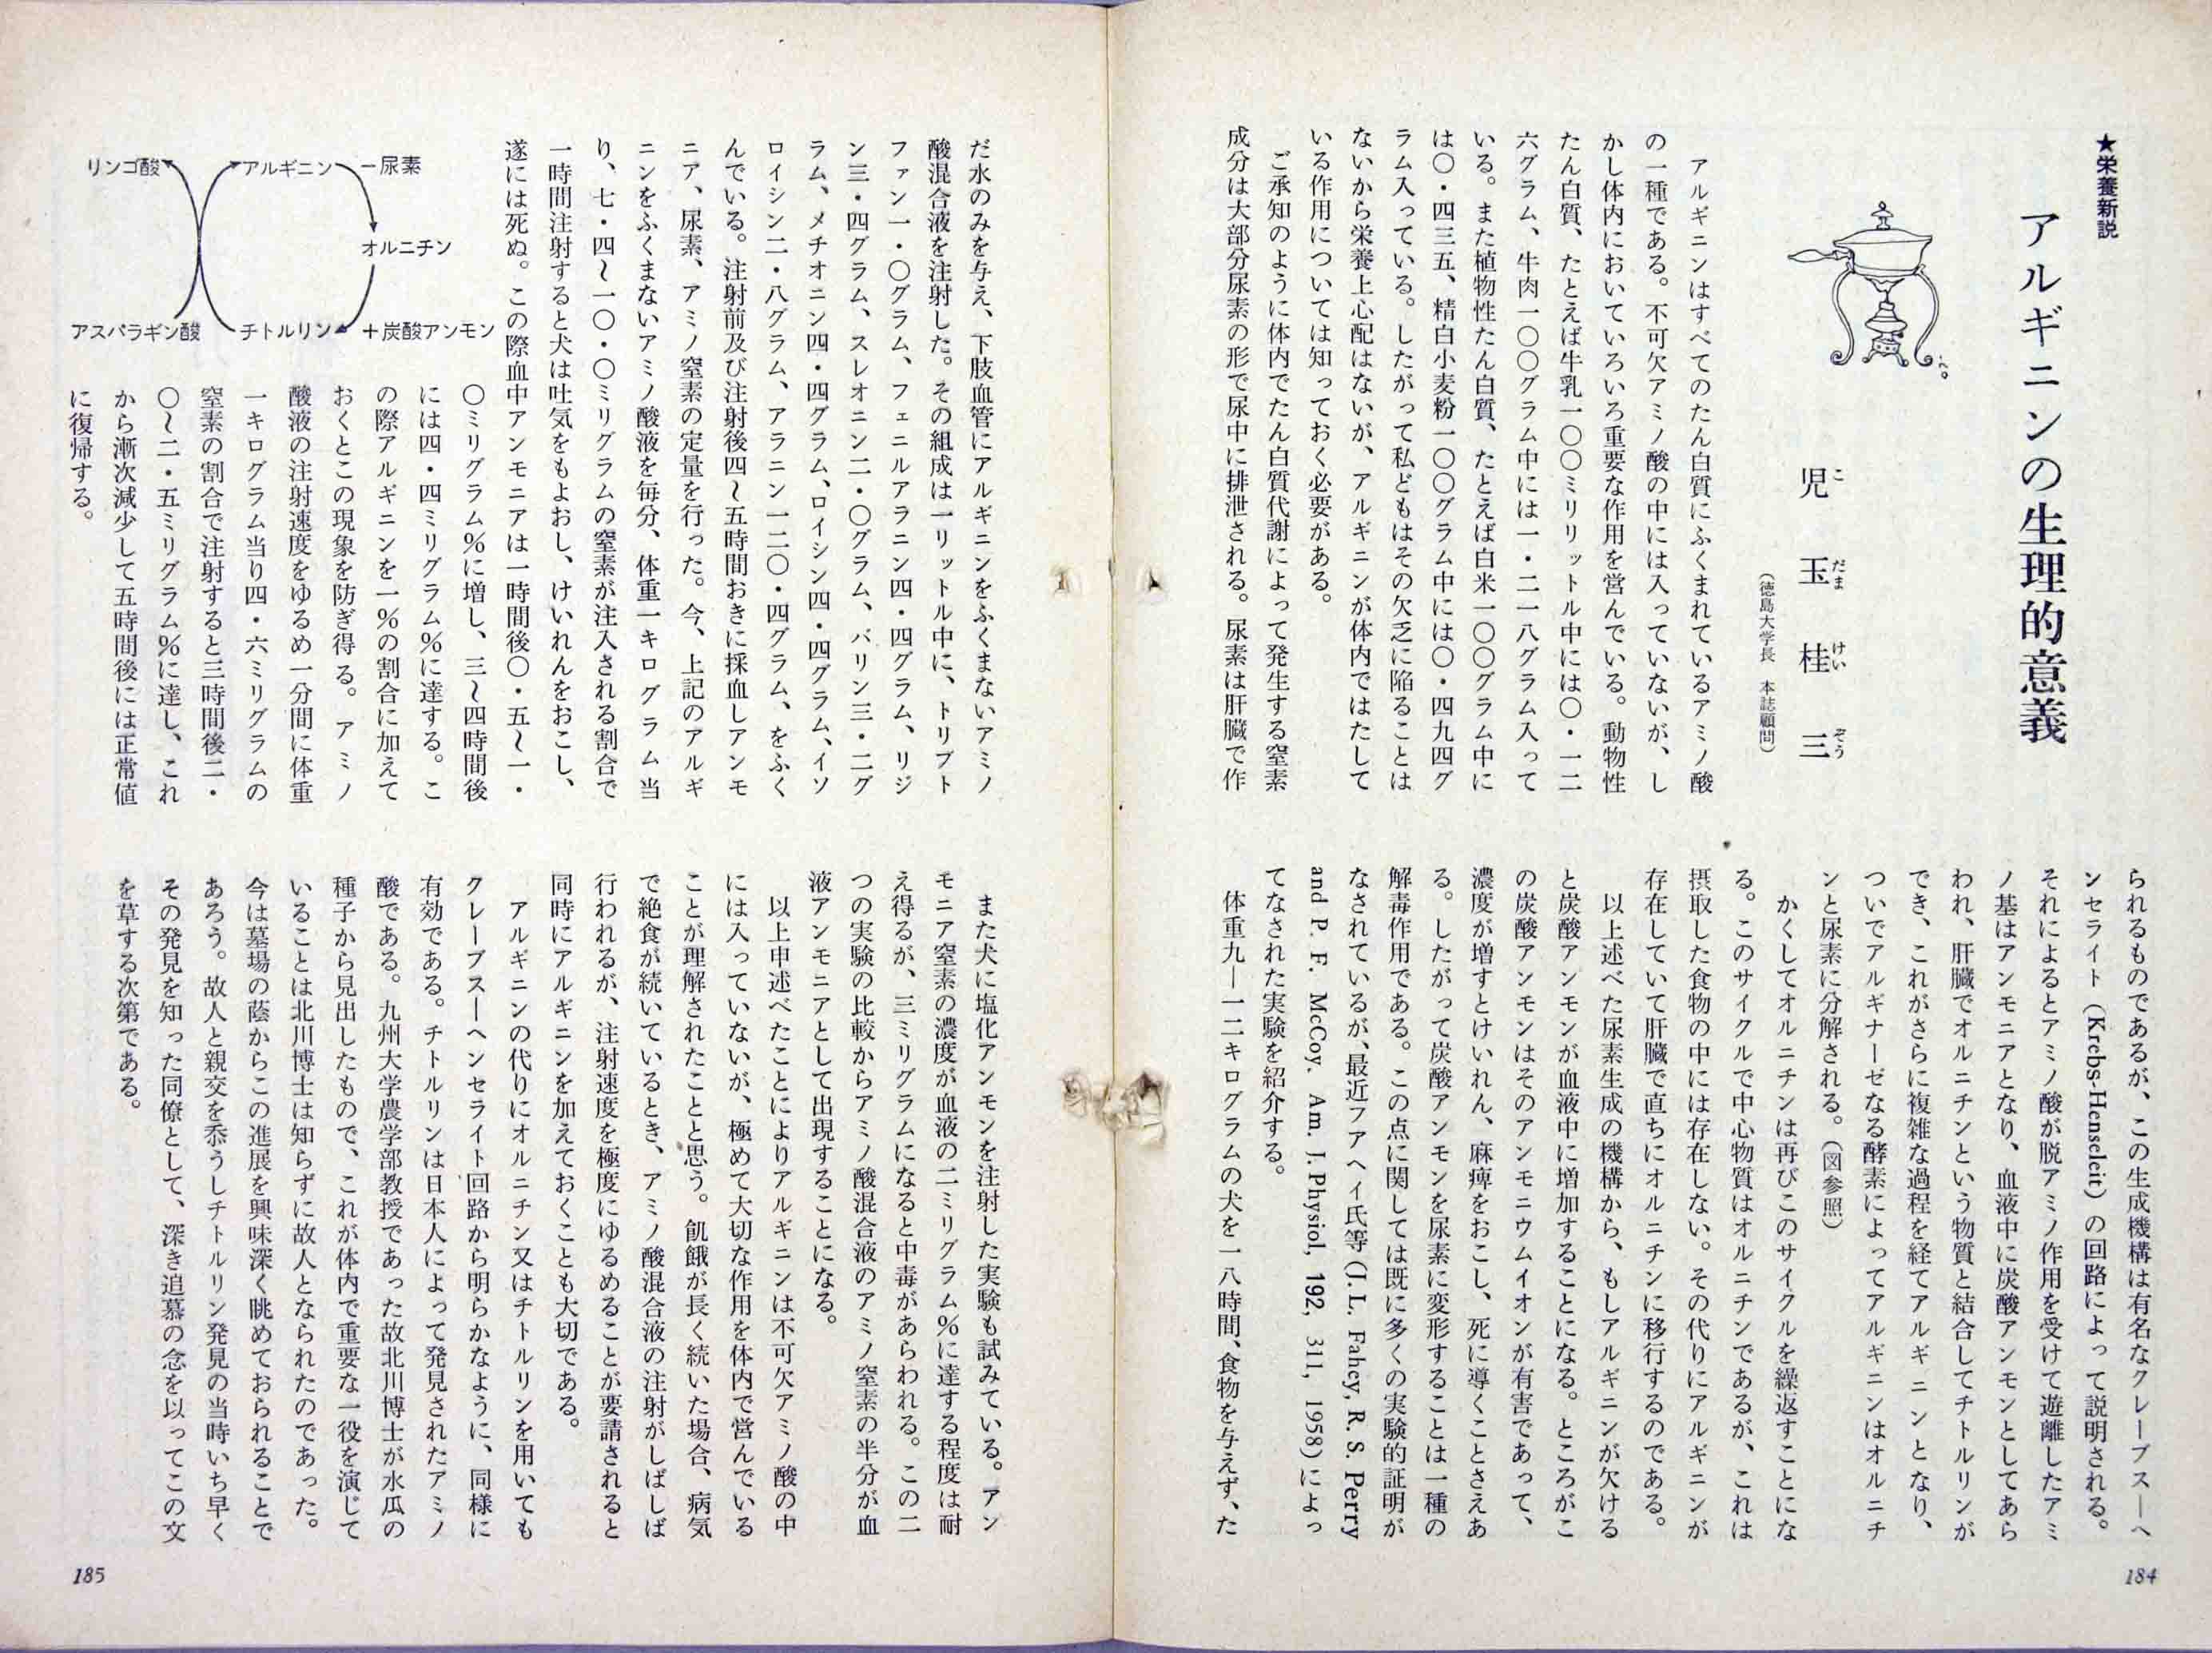 ★栄養新説
アルギニンの生理的意義
児玉桂三
こだまけいぞう
(徳島大学長 本誌顧問)
アルギニンはすべてのたん白質にふくまれているアミノ酸
の一種である。不可欠アミノ酸の中には入っていないが、し
かし体内においていろいろ重要な作用を営んでいる。動物性
たん白質、たとえば牛乳一〇〇ミリリットル中には〇・一二
六グラム、牛肉一〇〇グラム中には一・二一八グラム入って
いる。また植物性たん白質、たとえば白米一〇〇グラム中に
は〇・四三五、精白小麦粉一〇〇グラム中には〇・四九四グ
ラム入っている。したがって私どもはその欠乏に陥ることは
ないから栄養上心配はないが、アルギニンが体内ではたして
いる作用については知っておく必要がある。
ご承知のように体内でたん白質代謝によって発生する窒素
成分は大部分尿素の形で尿中に排泄される。尿素は肝臓で作
られるものであるが、この生成機構は有名なクレーブス―ヘ
ンセライト(Krebs-Henseleit)の回路によって説明される。
それによるとアミノ酸が脱アミノ作用を受けて遊離したアミ
ノ基はアンモニアとなり、血液中に炭酸アンモンとしてあら
われ、肝臓でオルニチンという物質と結合してチトルリンが
でき、これがさらに複雑な過程を経てアルギニンとなり、
ついでアルギナーゼなる酵素によってアルギニンはオルニチ
ンと尿素に分解される。(図参照)
かくしてオルニチンは再びこのサイクルを繰返すことにな
る。このサイクルで中心物質はオルニチンであるが、これは
摂取した食物の中には存在しない。その代りにアルギニンが
存在していて肝臓で直ちにオルニチンに移行するのである。
以上述べた尿素生成の機構から、もしアルギニンが欠ける
と炭酸アンモンが血液中に増加することになる。ところがこ
の炭酸アンモンはそのアンモニウムイオンが有害であって、
濃度が増すとけいれん、麻痺をおこし、死に導くことさえあ
る。したがって炭酸アンモンを尿素に変形することは一種の
解毒作用である。この点に関しては既に多くの実験的証明が
なされているが、最近フアヘイ氏等(J. L. Fahey, R. S. Perry
and P. F. McCoy. Am. J. Physiol, 192, 311, 1958)によっ
てなされた実験を紹介する。
体重九―一二キログラムの犬を一八時間、食物を与えず、た
184
だ水のみを与え、下肢血管にアルギニンをふくまないアミノ
酸混合液を注射した。その組成は一リットル中に、トリプト
ファン一・〇グラム、フェニルアラニン四・四グラム、リジ
ン三・四グラム、スレオニン二・〇グラム、バリン三・二グ
ラム、メチオニン四・四グラム、ロイシン四・四グラム、イソ
ロイシン二・八グラム、アラニン一二〇・四グラム、をふく
んでいる。注射前及び注射後四〜五時間おきに採血しアンモ
ニア、尿素、アミノ窒素の定量を行った。今、上記のアルギ
ニンをふくまないアミノ酸液を毎分、体重一キログラム当
り、七・四〜一〇・〇ミリグラムの窒素が注入される割合で
一時間注射すると犬は吐気をもよおし、けいれんをおこし、
遂には死ぬ。この際血中アンモニアは一時間後〇・五〜一・
〇ミリグラム%に増し、三〜四時間後
には四・四ミリグラム%に達する。こ
の際アルギニンを一%の割合に加えて
おくとこの現象を防ぎ得る。アミノ
酸液の注射速度をゆるめ一分間に体重
一キログラム当り四・六ミリグラムの
窒素の割合で注射すると三時間後二・
〇〜二・五ミリグラム%に達し、これ
から漸次減少して五時間後には正常値
に復帰する。
リンゴ酸
アルギニン
−尿素
オルニチン
アスパラギン酸
チトルリン
+炭酸アンモン
また犬に塩化アンモンを注射した実験も試みている。アン
モニア窒素の濃度が血液の二ミリグラム%に達する程度は耐
え得るが、三ミリグラムになると中毒があらわれる。この二
つの実験の比較からアミノ酸混合液のアミノ窒素の半分が血
液アンモニアとして出現することになる。
以上申述べたことによりアルギニンは不可欠アミノ酸の中
には入っていないが、極めて大切な作用を体内で営んでいる
ことが理解されたことと思う。飢餓が長く続いた場合、病気
で絶食が続いているとき、アミノ酸混合液の注射がしばしば
行われるが、注射速度を極度にゆるめることが要請されると
同時にアルギニンを加えておくことも大切である。
アルギニンの代りにオルニチン又はチトルリンを用いても
クレーブス―ヘンセライト回路から明らかなように、同様に
有効である。チトルリンは日本人によって発見されたアミノ
酸である。九州大学農学部教授であった故北川博士が水瓜の
種子から見出したもので、これが体内で重要な一役を演じて
いることは北川博士は知らずに故人となられたのであった。
今は墓場の蔭からこの進展を興味深く眺めておられることで
あろう。故人と親交を忝うしチトルリン発見の当時いち早く
その発見を知った同僚として、深き追慕の念を以ってこの文
を草する次第である。
185